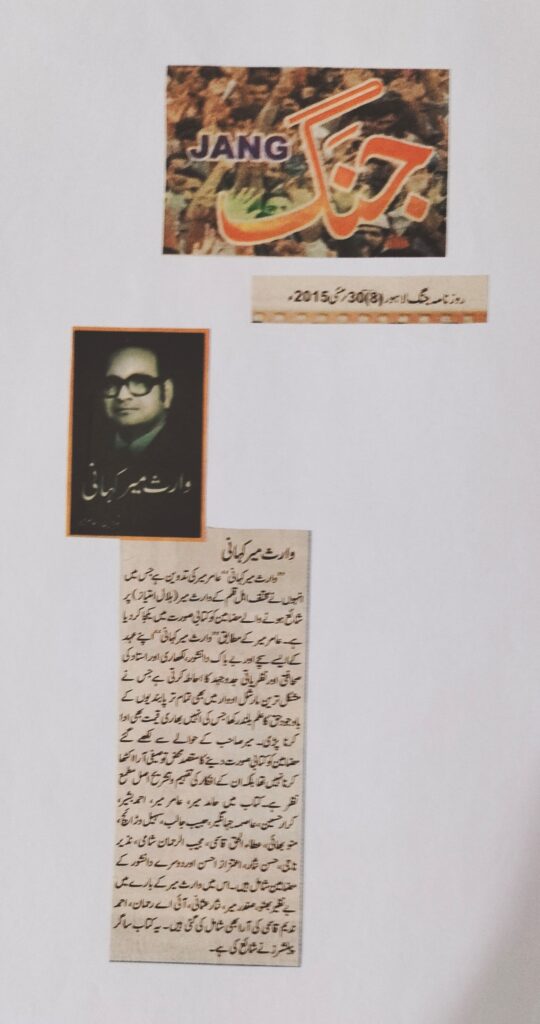 JANG جنگ
روزنامہ جنگ لاہور (8) 30 مئی 2015ء
وارث میر کہانی
وارث میر کہانی
”وارث میر کہانی“ عامر میر کی تدوین ہے جس میں
انہوں نے مختلف اہل قلم کے وارث میر (ہلال امتیاز) پر
شائع ہونے والے مضامین کو کتابی صورت میں یکجا کر دیا
ہے۔ عامر میر کے مطابق ”وارث میر کہانی“ اپنے عہد
کے ایسے سچے اور بے باک دانشور، لکھاری اور استاد کی
صحافتی اور نظریاتی جدوجہد کا احاطہ کرتی ہے جس نے
مشکل ترین مارشل ادوار میں بھی تمام تر پابندیوں کے
باوجود حق کا علم بلند رکھا جس کی انہیں بھاری قیمت بھی ادا
کرنا پڑی۔ میر صاحب کے حوالے سے لکھے گئے
مضامین کو کتابی صورت دینے کا مقصد محض توصیفی آرا اکٹھا
کرنا نہیں تھا بلکہ ان کے افکار کی تفہیم و تشریح اصل مطمع
نظر ہے۔ کتاب میں حامد میر، عامر میر، احمد بشیر،
کرار حسین، عاصمہ جہانگیر، حبیب جالب، سہیل وڑائچ،
منو بھائی، عطاء الحق قاسمی، مجیب الرحمان شامی، نذیر
ناجی، حسن نثار، اعتزاز احسن اور دوسرے دانشور کے
مضامین شامل ہیں۔ اس میں وارث میر کے بارے میں
بے نظیر بھٹو، صفدر میر، نثار عثمانی، آئی اے رحمان، احمد
ندیم قاسمی کی آرا بھی شامل کی گئی ہیں۔ یہ کتاب ساگر
پبلشرز نے شائع کی ہے۔